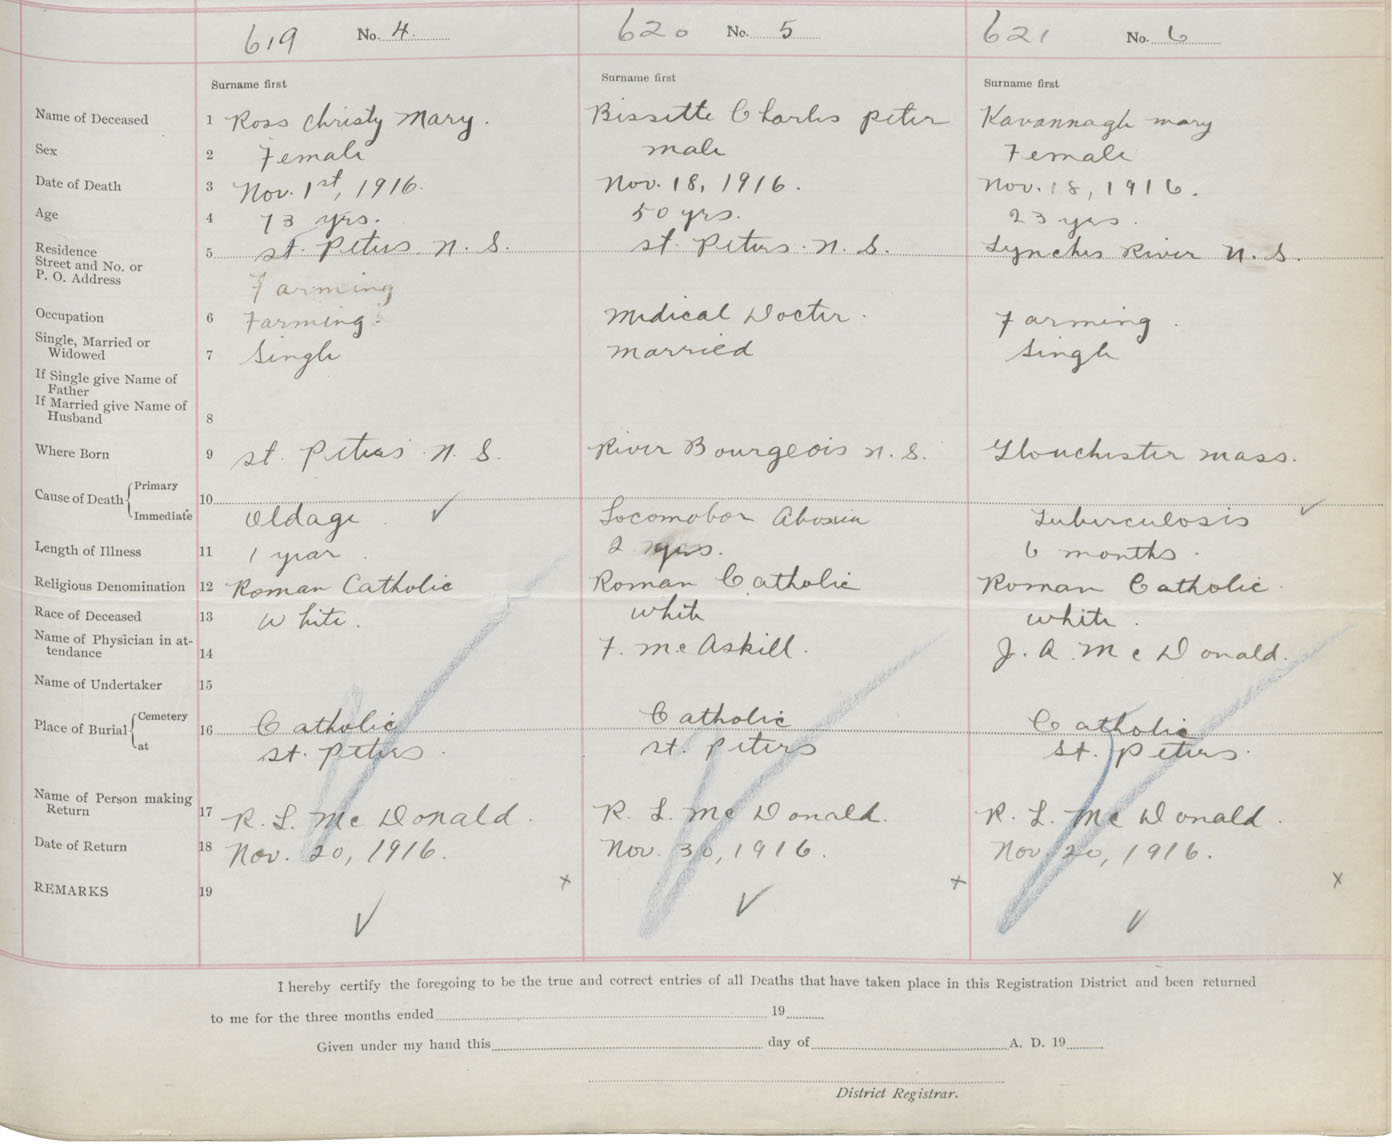 619 No. 4. 620 No. 5 621 No. 6
Surname first Surname first Surname first
Name of Deceased 1 Ross Christy Mary. Bissette Charles Peter Kavannagh Mary
Sex 2 Female male Female
Date of Death 3 Nov. 1st, 1916. Nov. 18, 1916. Nov. 18, 1916.
Age 4 73 yrs. 50 yrs. 23 yrs.
Residence
Street and No. or
P. O. Address 5 St. Peters N. S. St. Peters N. S. Lynches River N. S.
Farming
Occupation 6 Farming. Medical Doctor. Farming.
Single, Married or
Widowed 7 Single married Single
If Single give Name of
Father
If Married give Name of
Husband 8
Where Born 9 St. Peters N. S. River Bourgeois N. S. Glouchester Mass.
Cause of Death Primary 10
Immediate Oldage Locomobor Tuberculosis
Length of Illness 11 1 year 2 yrs. 6 months.
Religious Denomination 12 Roman Catholic Roman Catholic Roman Catholic
Race of Deceased 13 White. White White.
Name of Physician in at-
tendance 14 F. McAskill. J. A. McDonald.
Name of Undertaker 15
Place of Burial Cemetery 16 Catholic Catholic Catholic
at St. Peters St. Peters St. Peters
Name of Person making
Return 17 R. L. McDonald. R. L. McDonald. R. L. McDonald.
Date of Return 18 Nov. 20, 1916. Nov. 30, 1916. Nov 20, 1916.
REMARKS 19 x x x
I hereby certify the foregoing to be the true and correct entries of all Deaths that have taken place in this Registration District and been returned
to me for the three months ended 19
Given under my hand this day of A. D. 19
District Registrar.